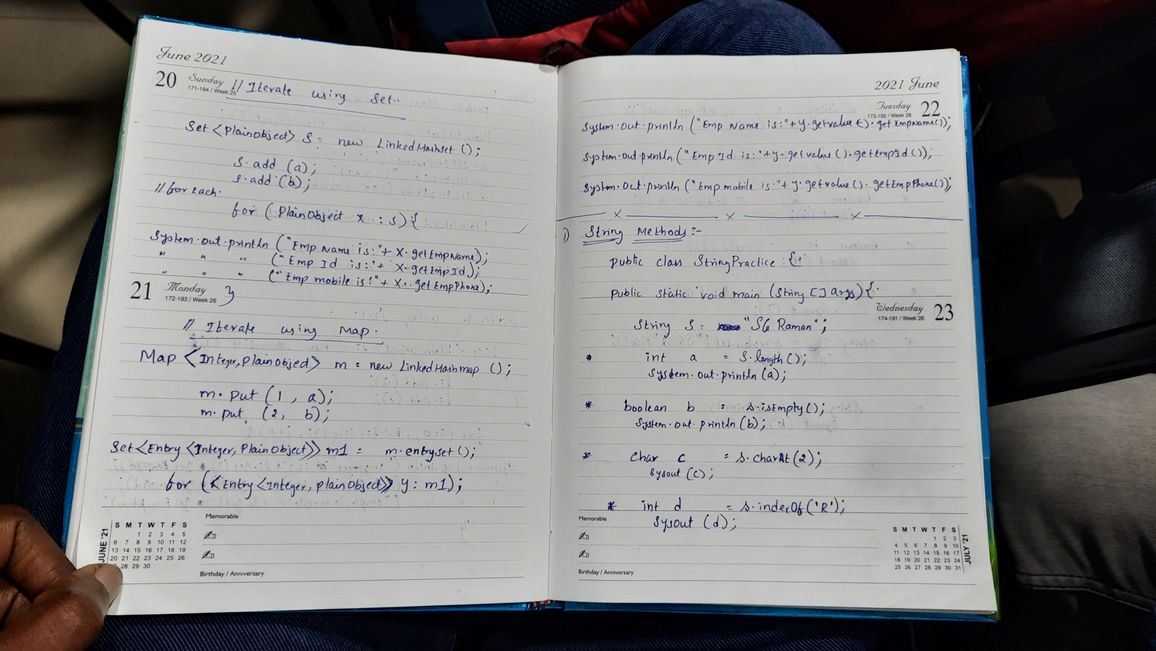 June 2021
20 Sunday
171-194 / Week 25
// Iterate using Set.
Set <PlainObject> S = new LinkedHashSet ();
S.add (a);
S.add (b);
// for Each.
for ( PlainObject x : S) {
System.out.println ("Emp Name is:"+ X.getEmpName);
" " " (" Emp Id is:"+ X.getEmpId);
" " " (" Emp mobile is:"+ X.getEmpPhone);
}
21 Monday
172-193 / Week 26
// Iterate using Map.
Map <Integer, PlainObject> m = new LinkedHashmap ();
m.put (1, a);
m.put (2, b);
Set <Entry <Integer, PlainObject>> m1 = m.entrySet ();
for (<Entry <Integer, PlainObject>> y : m1);
JUNE '21
S M T W T F S
1 2 3 4 5
6 7 8 9 10 11 12
13 14 15 16 17 18 19
20 21 22 23 24 25 26
28 29 30
Memorable
Birthday / Anniversary
2021 June
Tuesday 22
173-192 / Week 26
System.out.println ("Emp Name is:"+y.getvalue().getEmpName());
System.out.println ("Emp Id is:"+y.getvalue().getEmpId());
System.out.println ("Emp mobile is:"+y.getvalue().getEmpPhone());
x x x
1) String Methods :-
public class StringPractice {
public static void main (String [] args) {
Wednesday 23
174-191 / Week 26
String S = "SG Raman";
* int a = S.length();
System.out.println (a);
* boolean b = s.isEmpty();
System.out.println (b);
* Char c = s.charAt(2);
Sysout (c);
* int d = s.inderOf('R');
Sysout (d);
Memorable
Birthday / Anniversary
S M T W T F S
1 2 3
4 5 6 7 8 9 10
11 12 13 14 15 16 17
18 19 20 21 22 23 24
25 26 27 28 29 30 31
JULY '21